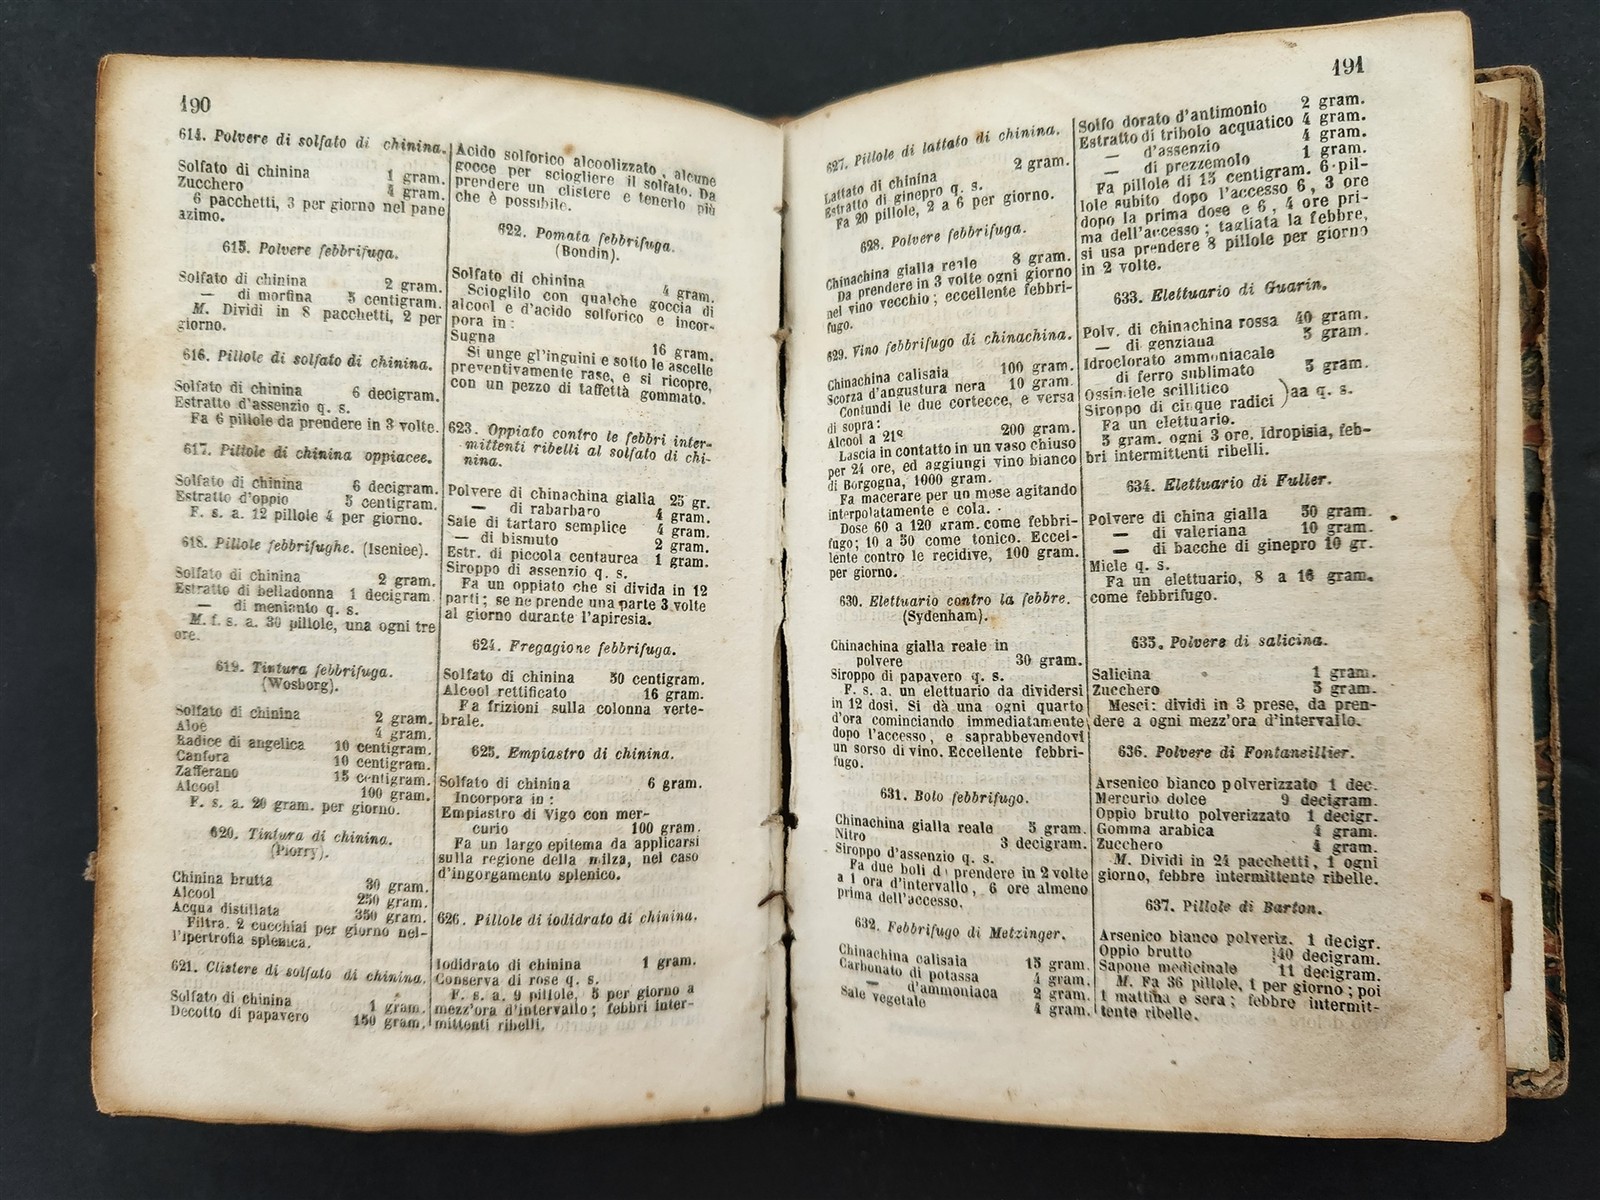 190
614. Polvere di solfato di chinina.
Solfato di chinina 1 gram.
Zucchero 4 gram.
6 pacchetti, 3 per giorno nel pane
azimo.
615. Polvere febbrifuga.
Solfato di chinina 2 gram.
— di morfina 5 centigram.
M. Dividi in 8 pacchetti, 2 per
giorno.
616. Pillole di solfato di chinina.
Solfato di chinina 6 decigram.
Estratto d'assenzio q. s.
Fa 6 pillole da prendere in 3 volte.
617. Pillole di chinina oppiacee.
Solfato di chinina 6 decigram.
Estratto d'oppio 5 centigram.
F. s. a. 12 pillole 4 per giorno.
618. Pillole febbrifughe. (Iseniee).
Solfato di chinina 2 gram.
Estratto di belladonna 1 decigram.
— di menianto q. s.
M. f. s. a. 30 pillole, una ogni tre
ore.
619. Tintura febbrifuga.
(Wosborg).
Solfato di chinina 2 gram.
Aloe 4 gram.
Radice di angelica 10 centigram.
Canfora 10 centigram.
Zafferano 15 centigram.
Alcool 100 gram.
F. s. a. 20 gram. per giorno.
620. Tintura di chinina.
(Piorry).
Chinina brutta 30 gram.
Alcool 250 gram.
Acqua distillata 350 gram.
Filtra. 2 cucchiai per giorno nel-
l'ipertrofia splenica.
621. Clistere di solfato di chinina.
Solfato di chinina 1 gram.
Decotto di papavero 150 gram.
Acido solforico alcoolizzato, alcune
gocce per sciogliere il solfato. Da
prendere un clistere e tenerlo più
che è possibile.
622. Pomata febbrifuga.
(Bondin).
Solfato di chinina 4 gram.
Scioglilo con qualche goccia di
alcool e d'acido solforico e incor-
pora in:
Sugna 16 gram.
Si unge gl'inguini e sotto le ascelle
preventivamente rase, e si ricopre,
con un pezzo di taffettà gommato.
623. Oppiato contro le febbri inter-
mittenti ribelli al solfato di chi-
nina.
Polvere di chinachina gialla 25 gr.
— di rabarbaro 4 gram.
Sale di tartaro semplice 4 gram.
— di bismuto 2 gram.
Estr. di piccola centaurea 1 gram.
Siroppo di assenzio q. s.
Fa un oppiato che si divida in 12
parti; se ne prende una parte 3 volte
al giorno durante l'apiresia.
624. Fregagione febbrifuga.
Solfato di chinina 50 centigram.
Alcool rettificato 16 gram.
Fa frizioni sulla colonna verte-
brale.
625. Empiastro di chinina.
Solfato di chinina 6 gram.
Incorpora in:
Empiastro di Vigo con mer-
curio 100 gram.
Fa un largo epitema da applicarsi
sulla regione della milza, nel caso
d'ingorgamento splenico.
626. Pillole di iodidrato di chinina.
Iodidrato di chinina 1 gram.
Conserva di rose q. s.
F. s. a. 9 pillole, 5 per giorno a
mezz'ora d'intervallo; febbri inter-
mittenti ribelli.
191
627. Pillole di lattato di chinina.
Lattato di chinina 2 gram.
Estratto di ginepro q. s.
Fa 20 pillole, 2 a 6 per giorno.
628. Polvere febbrifuga.
Chinachina gialla reale 8 gram.
Da prendere in 3 volte ogni giorno
nel vino vecchio; eccellente febbri-
fugo.
629. Vino febbrifugo di chinachina.
Chinachina calisaia 100 gram.
Scorza d'angustura nera 10 gram.
Contundi le due cortecce, e versa
di sopra:
Alcool a 21° 200 gram.
Lascia in contatto in un vaso chiuso
per 24 ore, ed aggiungi vino bianco
di Borgogna, 1000 gram.
Fa macerare per un mese agitando
interpolatamente e cola.
Dose 60 a 120 gram. come febbri-
fugo; 10 a 50 come tonico. Eccel-
lente contro le recidive, 100 gram.
per giorno.
630. Elettuario contro la febbre.
(Sydenham).
Chinachina gialla reale in
polvere 30 gram.
Siroppo di papavero q. s.
F. s. a. un elettuario da dividersi
in 12 dosi. Si dà una ogni quarto
d'ora cominciando immediatamente
dopo l'accesso, e saprabbevendovi
un sorso di vino. Eccellente febbri-
fugo.
631. Bolo febbrifugo.
Chinachina gialla reale 5 gram.
Nitro 3 decigram.
Siroppo d'assenzio q. s.
Fa due boli di prendere in 2 volte
a 1 ora d'intervallo, 6 ore almeno
prima dell'accesso.
632. Febbrifugo di Metzinger.
Chinachina calisaia 15 gram.
Carbonato di potassa 4 gram.
— d'ammoniaca 2 gram.
Sale vegetale 4 gram.
Solfo dorato d'antimonio 2 gram.
Estratto di tribolo acquatico 4 gram.
— d'assenzio 4 gram.
— di prezzemolo 1 gram.
Fa pillole di 15 centigram. 6 pil-
lole subito dopo l'accesso 6, 3 ore
dopo la prima dose e 6, 4 ore pri-
ma dell'accesso; tagliata la febbre,
si usa prendere 8 pillole per giorno
in 2 volte.
633. Elettuario di Guarin.
Polv. di chinachina rossa 40 gram.
— di genziana 5 gram.
Idroclorato ammoniacale
di ferro sublimato 5 gram.
Ossimiele scillitico
Siroppo di cinque radici )aa q. s.
Fa un elettuario.
5 gram. ogni 3 ore. Idropisia, feb-
bri intermittenti ribelli.
634. Elettuario di Fuller.
Polvere di china gialla 50 gram.
— di valeriana 10 gram.
— di bacche di ginepro 10 gr.
Miele q. s.
Fa un elettuario, 8 a 16 gram.
come febbrifugo.
635. Polvere di salicina.
Salicina 1 gram.
Zucchero 5 gram.
Mesci: dividi in 3 prese, da pren-
dere a ogni mezz'ora d'intervallo.
636. Polvere di Fontaneillier.
Arsenico bianco polverizzato 1 dec.
Mercurio dolce 9 decigram.
Oppio brutto polverizzato 1 decigr.
Gomma arabica 4 gram.
Zucchero 4 gram.
M. Dividi in 24 pacchetti, 1 ogni
giorno, febbre intermittente ribelle.
637. Pillole di Barton.
Arsenico bianco polveriz. 1 decigr.
Oppio brutto 40 decigram.
Sapone medicinale 11 decigram.
M. Fa 36 pillole, 1 per giorno; poi
1 mattina e sera; febbre intermit-
tente ribelle.